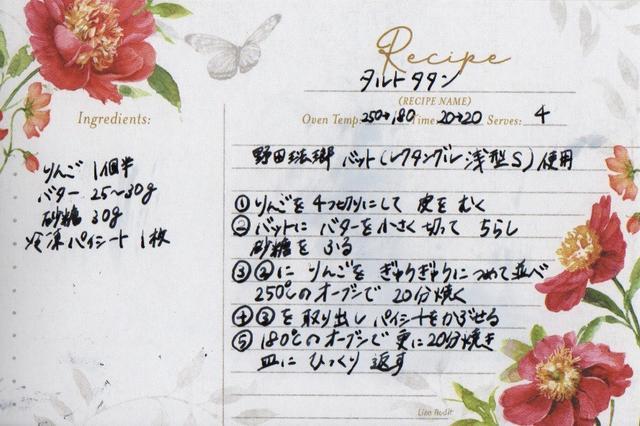 Recipe
タルトタタン
(RECIPE NAME)
Oven Temp: 250→180 Time: 20→20 Serves: 4
Ingredients:
りんご 1個半
バター 25〜30g
砂糖 30g
冷凍パイシート 1枚
野田琺瑯 バット(レクタングル浅型S)使用
①りんごを4つ切りにして 皮をむく
②バットに バターを小さく切って ちらし
砂糖を ふる
③②に りんごを ぎゅうぎゅうに つめて並べ
250℃のオーブンで 20分焼く
④③を取り出し パイシートをかぶせる
⑤180℃のオーブンで 更に20分焼き
皿に ひっくり 返す
Lisa Audit